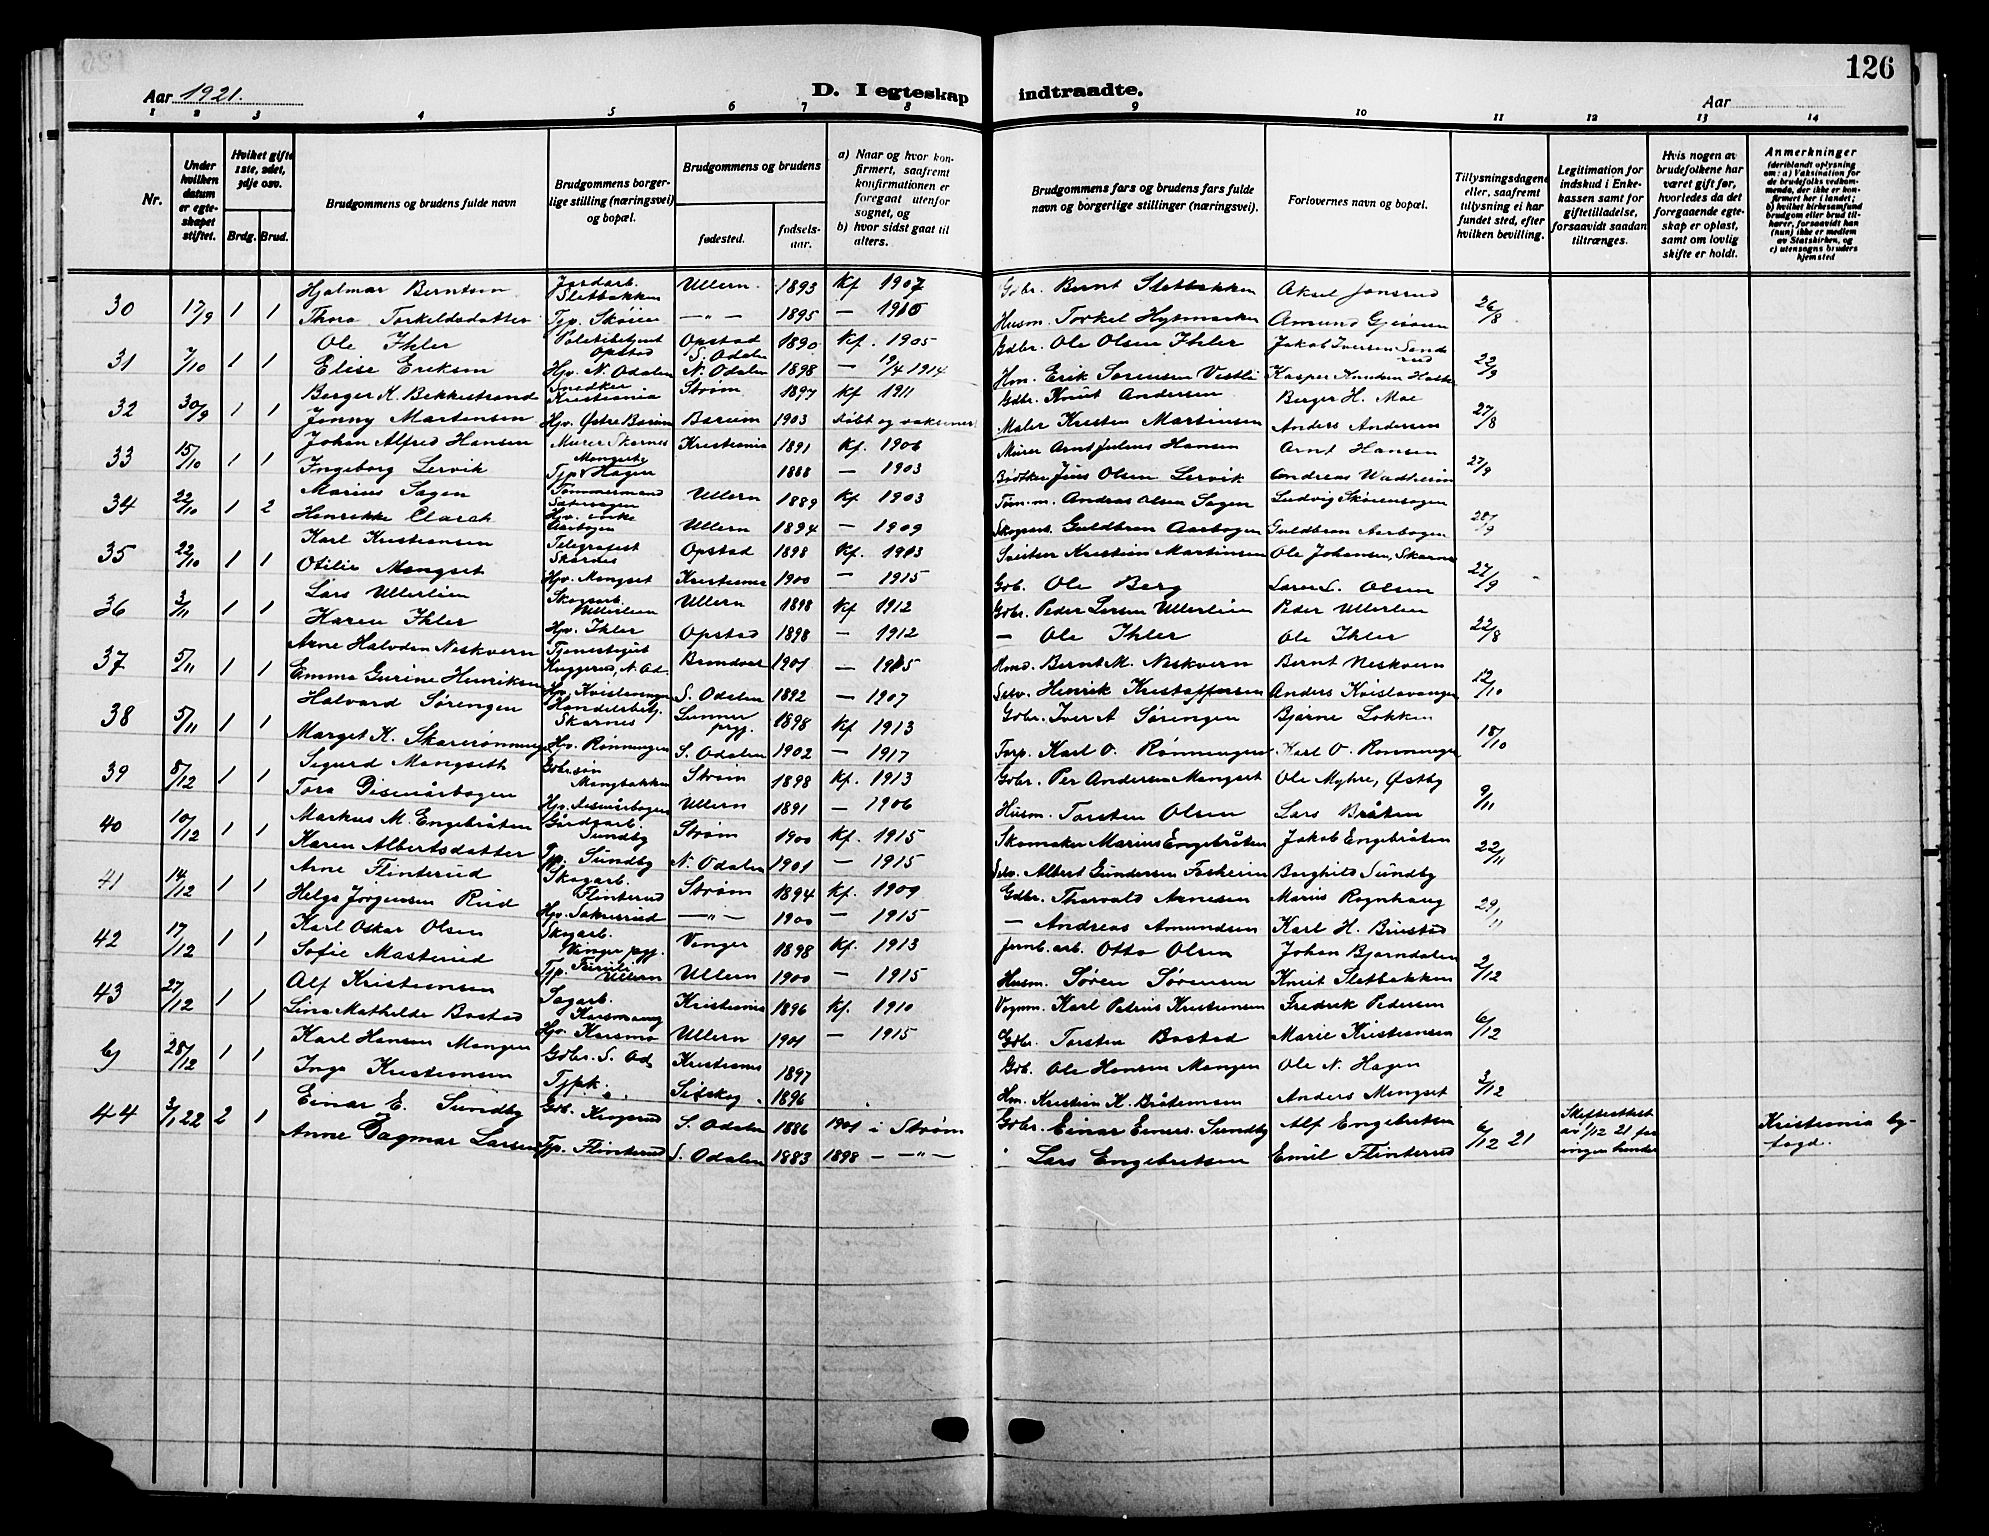 126
Aar 1921.
D. I egteskap indtraadte.
Aar
1 2 3 4 5 6 7 8 9 10 11 12 13 14
Nr.
Under hvilken datum er egteskapet stiftet.
Hvilket gifte 1ste, 2det, 3dje osv.
Brdg. Brud.
Brudgommens og brudens fulde navn
Brudgommens borgerlige stilling (næringsvei) og bopæl.
Brudgommens og brudens
fødested.
fødselsaar.
a) Naar og hvor konfirmert, saafremt konfirmationen er foregaat utenfor sognet, og
b) hvor sidst gaat til alters.
Brudgommens fars og brudens fars fulde navn og borgerlige stillinger (næringsvei).
Forlovernes navn og bopæl.
Tillysningsdagene eller, saafremt tillysning ei har fundet sted, efter hvilken bevilling.
Legitimation for indskud i Enkekassen samt for giftetilladelse, forsaavidt saadan tiltrænges.
Hvis nogen av brudefolkene har været gift før, hvorledes da det foregaaende egteskap er opløst, samt om lovlig skifte er holdt.
Anmerkninger
(deriblandt oplysning om: a) Vaksination for de brudefolks vedkommende, der ikke er konfirmert her i landet; b) hvilket kirkesamfund brudgom eller brud tilhører, forsaavidt han (hun) ikke er medlem av Statskirken, og c) utensogns bruders hjemsted
30 17/9 1 1 Hjalmar Berntsen Jordarb. Sletbakken Ullern 1893 Kf 1907 Gbr. Bernt Sletbakken Aksel Jonsrud 26/8
Thora Torkeldsdatter Tjp. Skøien —"— 1895 — 1910 Husm. Torkel Hytmarken Amund Gjersøen
31 7/10 1 1 Ole Ihler Politibetjent Opstad Opstad S. Odalen 1890 Kf. 1905 Gdbr. Ole Olsen Ihler Jakob Iversen 22/9
Elise Eriksen Hjv. N. Odalen N. Odalen 1898 — 19/4 1914 Hm. Erik Sørensen Vestli Kasper Knudsen
32 30/9 1 1 Borger K. Bekkestrand Snedker Kristiania Strøm 1897 Kf 1911 Gdbr. Knut Andersen Berger H. Moe 27/8
Jenny Martinsen Hjv. Østre Bærum Bærum 1903 døbt og Maler Kristen Martinsen Anders Andersen
33 15/10 1 1 Johan Alfred Hansen Murer Skarnes Kristiania 1891 Kf. 1906 Murer Arnt Julius Hansen Arnt Hansen 27/9
Ingeborg Lervik Tjp. v Hagen 1888 — 1903 Bødtker Jens Olsen Lervik Andreas
34 22/10 1 2 Marius Sagen Tømmermand Ullern 1889 Kf 1903 Tøm.m. Andreas Olsen Sagen Ludvig Skøiensagen 28/9
Henrikke Aarbogen Ullern 1894 — 1909 Skogsarb. Guldbran Aarbogen Guldbran Aarbogen
35 22/10 1 1 Karl Kristiansen Telegrafist Skarnes Opstad 1898 Kf. 1913 Kristian Martinsen Ole Johansen, Skarnes 27/9
Otilie Mangset Hjv. Mangset Kristiania 1900 — 1915 Gbr. Ole Berg Olsen
36 3/11 1 1 Lars Ullerlien Skogarb. Ullerlien Ullern 1898 Kf 1912 Gbr. Peder Larsen Ullerlien Peder Ullerlien 22/8
Karen Ihler Hjv. Ihler Opstad 1898 — 1912 — Ole Ihler Ole Ihler
37 5/11 1 1 Arne Halvdan Neskvern Tjenestegut Kuggerud, N. Od. Brandval 1901 — 1915 Hmd. Bernt M. Neskvern Bernt Neskvern 12/10
Emma Gurine Henriksen Hjv. Kvislavangen S. Odalen 1892 — 1907 Selv. Henrik Kristoffersen Anders Kvislavangen
38 5/11 1 1 Halvard Sørengen Handelsbetj. Skarnes Lunner prgj. 1898 Kf 1913 Gdbr. Iver A Sørengen Bjarne Løkken 18/10
Marget K. Skarerønningen Hjv. Rønningen S. Odalen 1902 — 1917 Torp. Karl O. Rønningen Karl O. Rønningen
39 8/12 1 1 Sigurd Mangseth Gbr.søn Mangbakken Strøm 1898 Kf. 1913 Gdbr. Per Andersen Mangset Ole Myhre, Østby 9/11
Tora Disenårbogen Hjv. Disenårbogen Ullern 1891 — 1906 Husm. Torsten Olsen Lars Bråten
40 10/12 1 1 Markus M. Engebråten Gårdsarb. Sundby Strøm 1900 Kf. 1915 Skomaker Marius Engebråten Jakob Engebråten 22/11
Karen Albertsdatter Tjp. Sundby N. Odalen 1901 — 1915 Selv. Albert Gundersen Borghild Sundby
41 14/12 1 1 Arne Flinterud Skogarb. Flinterud Strøm 1894 Kf. 1909 Gdbr. Thorvald Arnesen Marius Rognhaug 29/11
Helga Jørgensen Rud Hjv. Sakrisrud —"— 1900 — 1915 — Andreas Amundsen Karl H.
42 17/12 1 1 Karl Oskar Olsen Skogarb. Vinger prgj. Vinger 1898 Kf. 1913 Jernb.arb. Otto Olsen Johan Bjørndalen 2/12
Sofie Masterud Tjp. Ullern Ullern 1900 — 1915 Husm. Søren Sørensen Knut Sletbakken
43 27/12 1 1 Alf Kristiansen Sagarb. Karsmoog Kristiania 1896 Kf. 1910 Vognm. Karl Petrus Kristiansen Fredrik Pedersen 6/12
Lina Mathilde Bøstad Hjv. Karsmo Ullern 1901 — 1915 Gdbr. Torsten Bøstad Marie Kristiansen
6) 28/12 1 1 Karl Hansen Mangen Gdbr. S. Od. Kristiania 1897 Gdb. Ole Hansen Mangen Ole N. Hagen 3/12
Inga Kristiansen Tjpk. Sidskog 1896 Hm. Kristian K. Bråtensen Anders Mangset
44 3/1 22 2 1 Einar E. Sundby Gbr. Krogsrud S. Odalen 1886 1901 i Strøm Gdbr. Einar Einers. Sundby Alf Engebretsen 6/12 21 Skifteattest av 1/12 21 fra Kristiania byfogd.
Anne Dagmar Larsen Tjp. Flinterud S. Odalen 1883 1898 —"— Lars Engebretsen Emil Flinterud